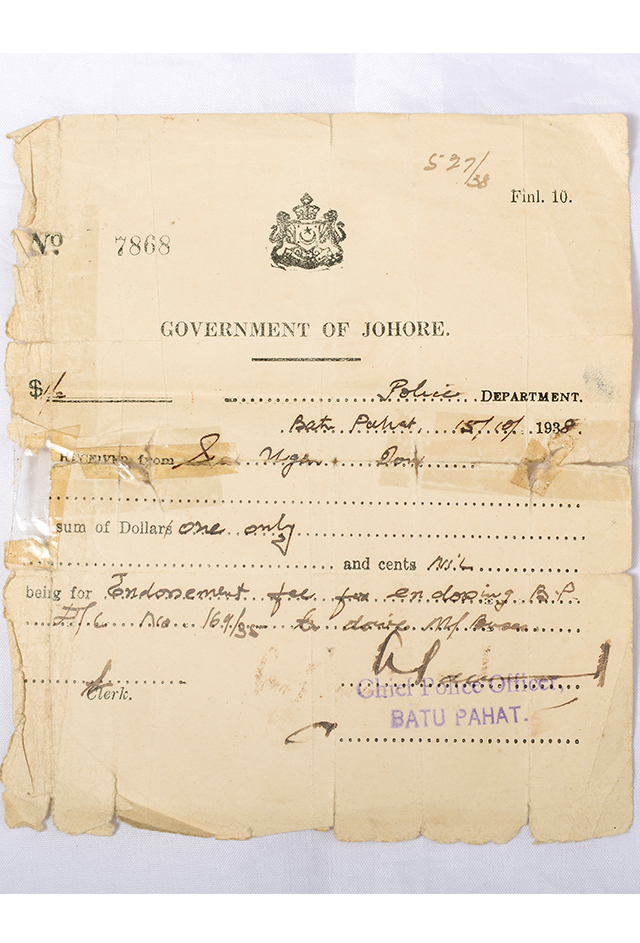 527/38
Finl. 10.
Nº 7868
GOVERNMENT OF JOHORE.
$ 1/- Police DEPARTMENT.
Batu Pahat, 15/10/ 1938
RECEIVED from
sum of Dollars one only
and cents Nil
being for Endorsement fee for endorsing B.P.
No. 169/35 to drive
Clerk.
Chief Police Officer,
BATU PAHAT.